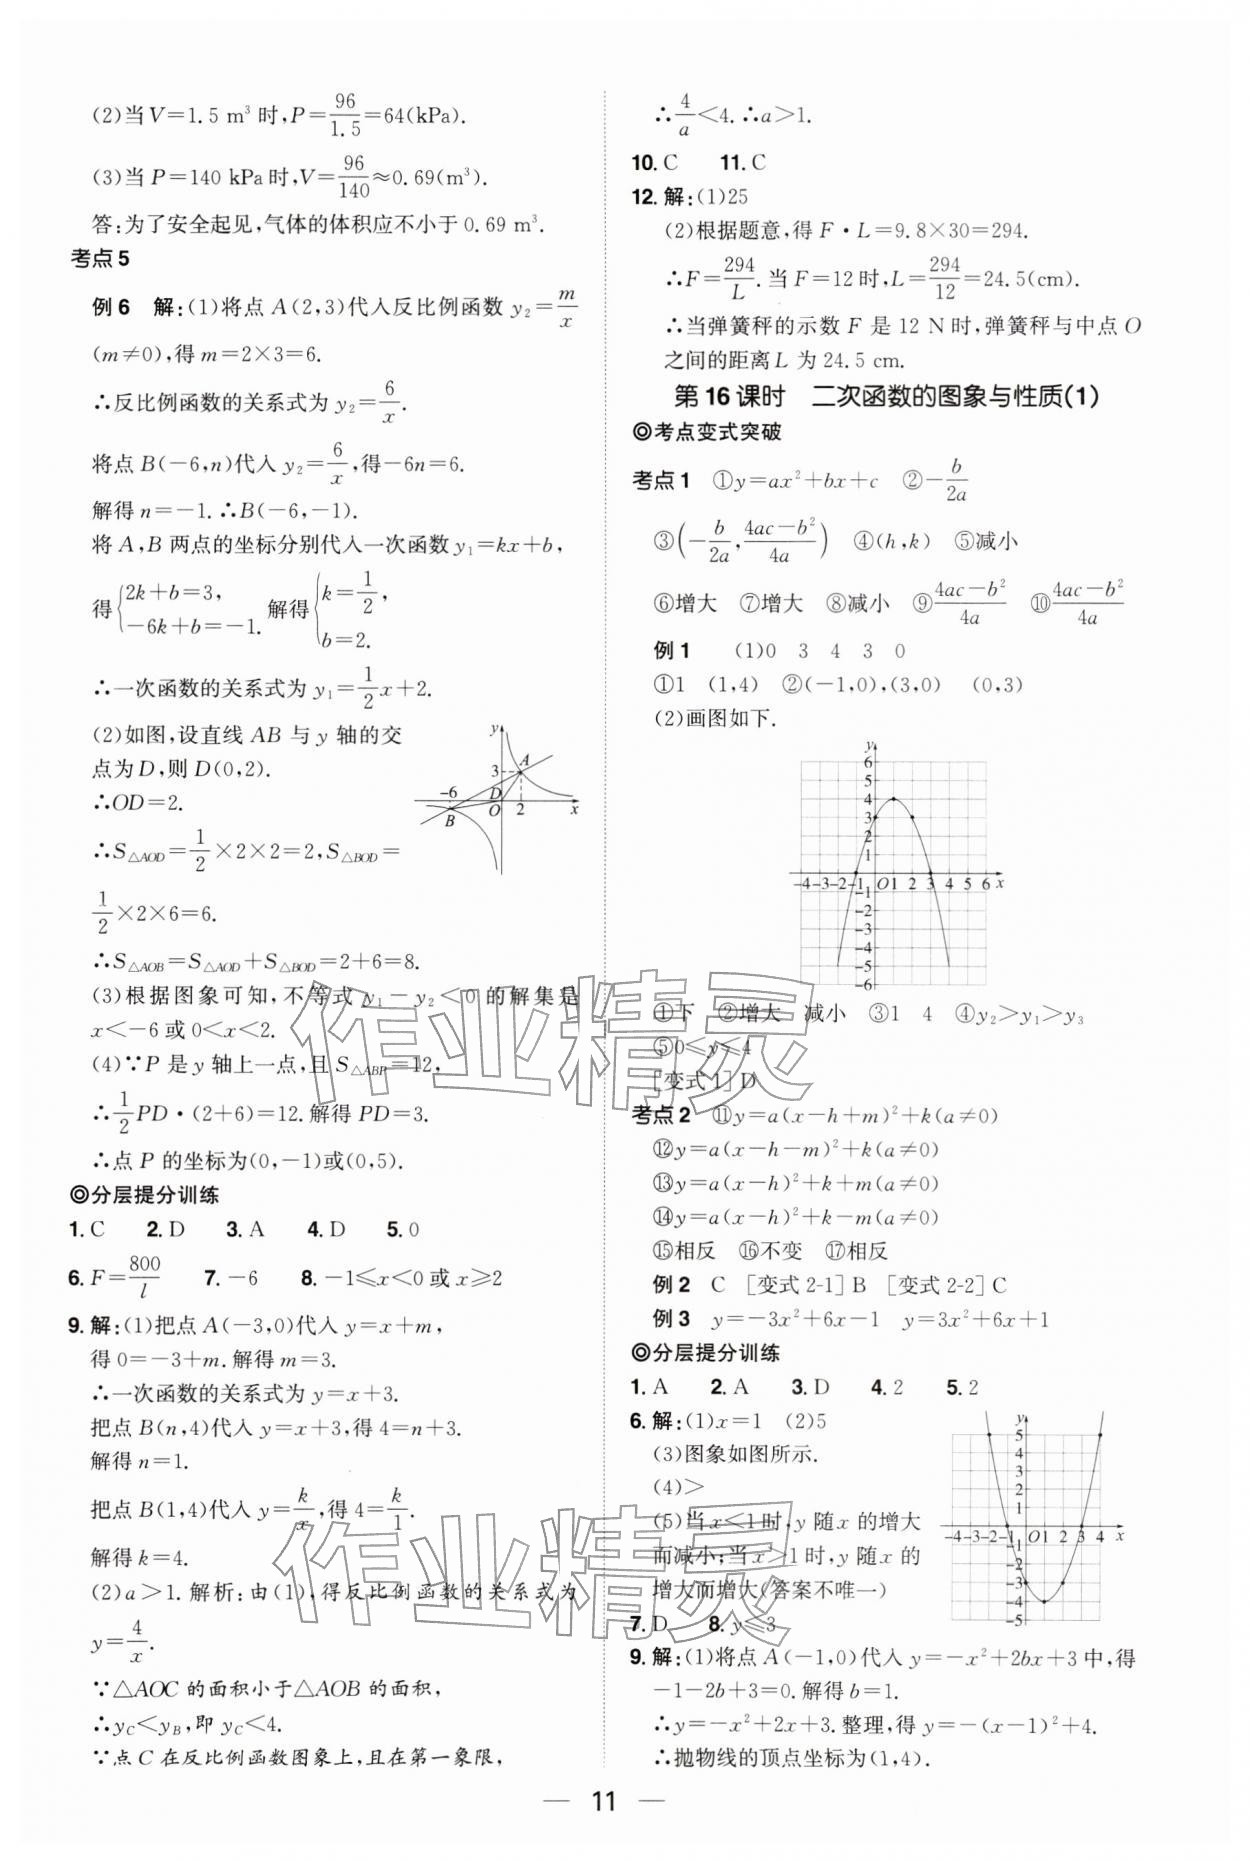 (2)当V=1.5 m³时,P=96/1.5=64(kPa).
(3)当P=140 kPa时,V=96/140≈0.69(m³).
答:为了安全起见,气体的体积应不小于0.69 m³.
考点5
例6 解:(1)将点A(2,3)代入反比例函数y₂=m/x
(m≠0),得m=2×3=6.
∴反比例函数的关系式为y₂=6/x.
将点B(-6,n)代入y₂=6/x,得-6n=6.
解得n=-1.∴B(-6,-1).
将A,B两点的坐标分别代入一次函数y₁=kx+b,
得{2k+b=3, -6k+b=-1. 解得{k=1/2, b=2.
∴一次函数的关系式为y₁=1/2x+2.
(2)如图,设直线AB与y轴的交
点为D,则D(0,2).
∴OD=2.
∴S△AOD=1/2×2×2=2,S△BOD=
1/2×2×6=6.
y
3
A
-6
D
B
O
2
x
∴S△AOB=S△AOD+S△BOD=2+6=8.
(3)根据图象可知,不等式y₁-y₂<0的解集是
x<-6或0<x<2.
(4)∵P是y轴上一点,且S△ABP=12,
∴1/2PD·(2+6)=12.解得PD=3.
∴点P的坐标为(0,-1)或(0,5).
◎分层提分训练
1.C 2.D 3.A 4.D 5.0
6.F=800/l 7.-6 8.-1≤x<0或x≥2
9.解:(1)把点A(-3,0)代入y=x+m,
得0=-3+m.解得m=3.
∴一次函数的关系式为y=x+3.
把点B(n,4)代入y=x+3,得4=n+3.
解得n=1.
把点B(1,4)代入y=k/x,得4=k/1.
解得k=4.
(2)a>1.解析:由(1),得反比例函数的关系式为
y=4/x.
∵△AOC的面积小于△AOB的面积,
∴yC<yB,即yC<4.
∵点C在反比例函数图象上,且在第一象限,
∴4/a<4.∴a>1.
10.C 11.C
12.解:(1)25
(2)根据题意,得F·L=9.8×30=294.
∴F=294/L.当F=12时,L=294/12=24.5(cm).
∴当弹簧秤的示数F是12 N时,弹簧秤与中点O
之间的距离L为24.5 cm.
第16课时 二次函数的图象与性质(1)
◎考点变式突破
考点1 ①y=ax²+bx+c ②-b/2a
③(-b/2a,(4ac-b²)/4a) ④(h,k) ⑤减小
⑥增大 ⑦增大 ⑧减小 ⑨(4ac-b²)/4a ⑩(4ac-b²)/4a
例1 (1)0 3 4 3 0
①1 (1,4) ②(-1,0),(3,0) (0,3)
(2)画图如下.
y
6
5
4
3
2
1
-4-3-2-1 O1 2 3 4 5 6 x
-1
-2
-3
-4
-5
-6
①下 ②增大 减小 ③1 4 ④y₂>y₁>y₃
⑤0≤y≤4
[变式1]D
考点2 ⑪y=a(x-h+m)²+k(a≠0)
⑫y=a(x-h-m)²+k(a≠0)
⑬y=a(x-h)²+k+m(a≠0)
⑭y=a(x-h)²+k-m(a≠0)
⑮相反 ⑯不变 ⑰相反
例2 C [变式2-1]B [变式2-2]C
例3 y=-3x²+6x-1 y=3x²+6x+1
◎分层提分训练
1.A 2.A 3.D 4.2 5.2
6.解:(1)x=1 (2)5
(3)图象如图所示.
(4)>
(5)当x<1时,y随x的增大
而减小;当x>1时,y随x的
增大而增大(答案不唯一)
y
5
4
3
2
1
-4-3-2-1 O1 2 3 4 x
-2
-3
-4
-5
7.D 8.y≤3
9.解:(1)将点A(-1,0)代入y=-x²+2bx+3中,得
-1-2b+3=0.解得b=1.
∴y=-x²+2x+3.整理,得y=-(x-1)²+4.
∴抛物线的顶点坐标为(1,4).
作业精灵
作业精灵
— 11 —